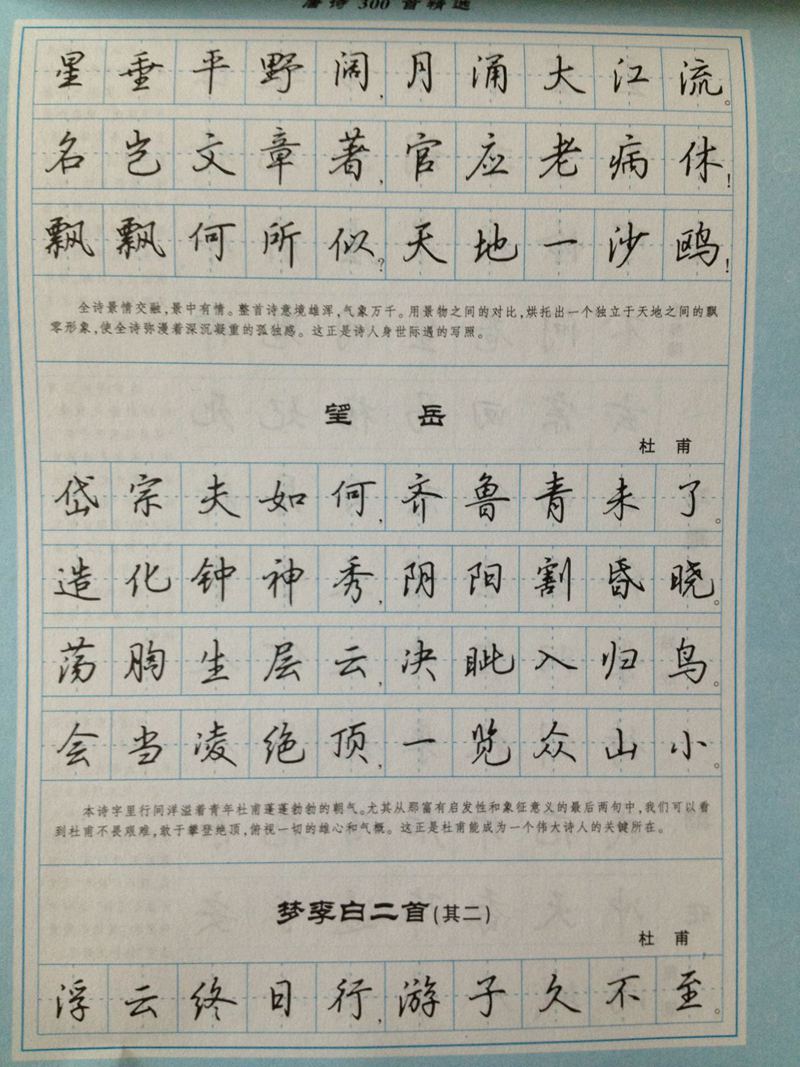 唐诗300首精选
星垂平野阔,月涌大江流。
名岂文章著,官应老病休!
飘飘何所似?天地一沙鸥!
全诗景情交融,景中有情。整首诗意境雄浑,气象万千。用景物之间的对比,烘托出一个独立于天地之间的飘
零形象,使全诗弥漫着深沉凝重的孤独感。这正是诗人身世际遇的写照。
望 岳
杜 甫
岱宗夫如何,齐鲁青未了。
造化钟神秀,阴阳割昏晓。
荡胸生层云,决眦入归鸟。
会当凌绝顶,一览众山小。
本诗字里行间洋溢着青年杜甫蓬蓬勃勃的朝气。尤其从那富有启发性和象征意义的最后两句中,我们可以看
到杜甫不畏艰难,敢于攀登绝顶,俯视一切的雄心和气概。这正是杜甫能成为一个伟大诗人的关键所在。
梦李白二首(其二)
杜 甫
浮云终日行,游子久不至。